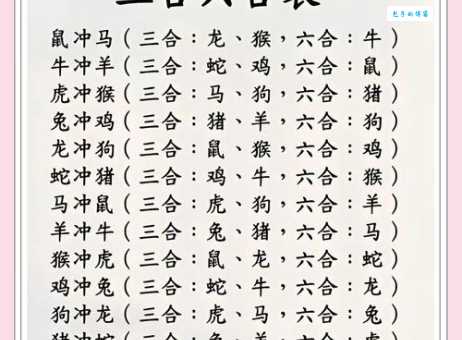 三合六合表
鼠冲马(三合:龙、猴,六合:牛)
牛冲羊(三合:蛇、鸡,六合:鼠)
虎冲猴(三合:马、狗,六合:猪)
兔冲鸡(三合:猪、羊,六合:狗)
龙冲狗(三合:鼠、猴,六合:鸡)
蛇冲猪(三合:鸡、牛,六合:猴)
马冲鼠(三合:虎、狗,六合:羊)
羊冲牛(三合:兔、猪,六合:马)
猴冲虎(三合:鼠、龙,六合:蛇)
鸡冲兔(三合:蛇、牛,六合:龙)
狗冲龙(三合:虎、马,六合:兔)
猪冲蛇(三合:兔、羊,六合:虎)